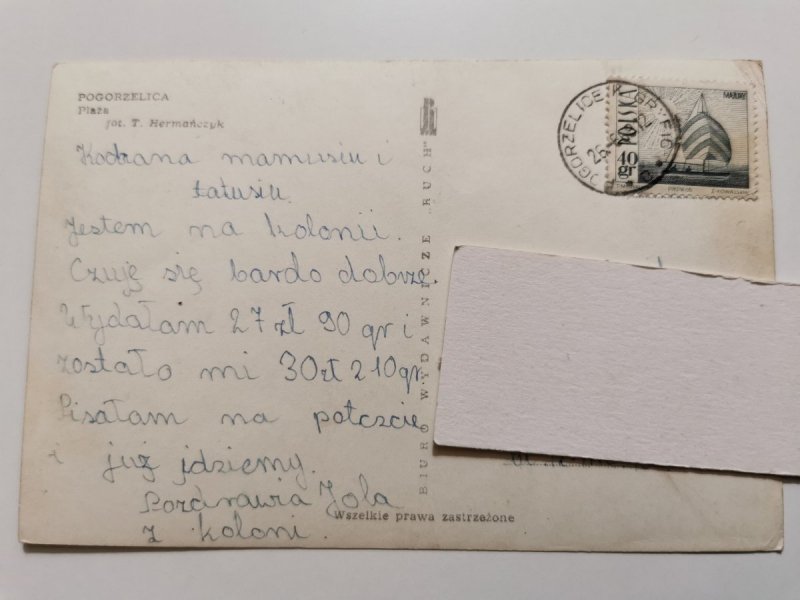 POGORZELICA
Plaża
fot. T. Hermańczyk
Kochana mamusiu i
tatusiu.
Jestem na kolonii.
Czuję się bardo dobrze.
Wydałam 27 zł 90 gr i
zostało mi 30 zł 2 10 gr
Pisałam na potczcie
i już jdziemy.
Pozdrawia Jola
z koloni.
BIURO WYDAWNICZE „RUCH"
Wszelkie prawa zastrzeżone
POLSKA
40 gr